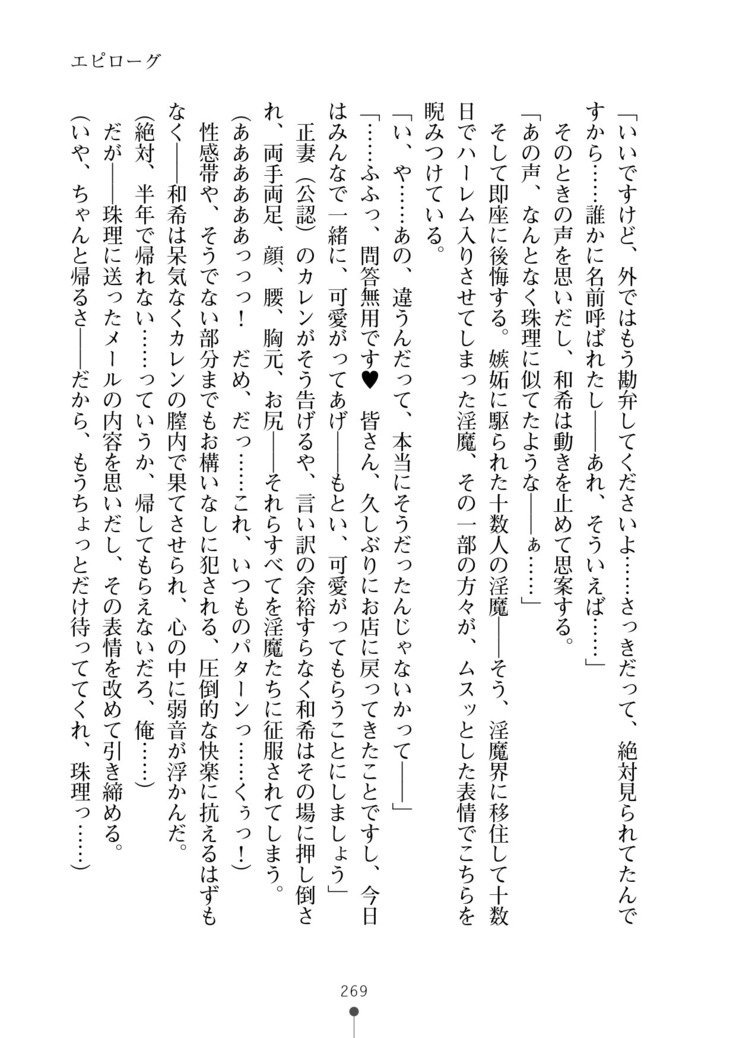 エピローグ
「いいですけど、外ではもう勘弁してくださいよ……さっきだって、絶対見られてたんで
すから……誰かに名前呼ばれたし――あれ、そういえば……」
そのときの声を思いだし、和希は動きを止めて思案する。
「あの声、なんとなく珠理に似てたような――ぁ……」
そして即座に後悔する。嫉妬に駆られた十数人の淫魔――そう、淫魔界に移住して十数
日でハーレム入りさせてしまった淫魔、その一部の方々が、ムスッとした表情でこちらを
睨みつけている。
「い、や……あの、違うんだって、本当にそうだったんじゃないかって――」
「……ふふっ、問答無用です♥　皆さん、久しぶりにお店に戻ってきたことですし、今日
はみんなで一緒に、可愛がってあげ――もとい、可愛がってもらうことにしましょう」
正妻（公認）のカレンがそう告げるや、言い訳の余裕すらなく和希はその場に押し倒さ
れ、両手両足、顔、腰、胸元、お尻――それらすべてを淫魔たちに征服されてしまう。
（ああああああっっっ！　だめ、だっ……これ、いつものパターンっ……くぅっ！）
性感帯や、そうでない部分までもお構いなしに犯される、圧倒的な快楽に抗えるはずも
なく――和希は呆気なくカレンの膣内で果てさせられ、心の中に弱音が浮かんだ。
（絶対、半年で帰れない……っていうか、帰してもらえないだろ、俺……）
だが――珠理に送ったメールの内容を思いだし、その表情を改めて引き締める。
（いや、ちゃんと帰るさ――だから、もうちょっとだけ待っててくれ、珠理っ……）
269